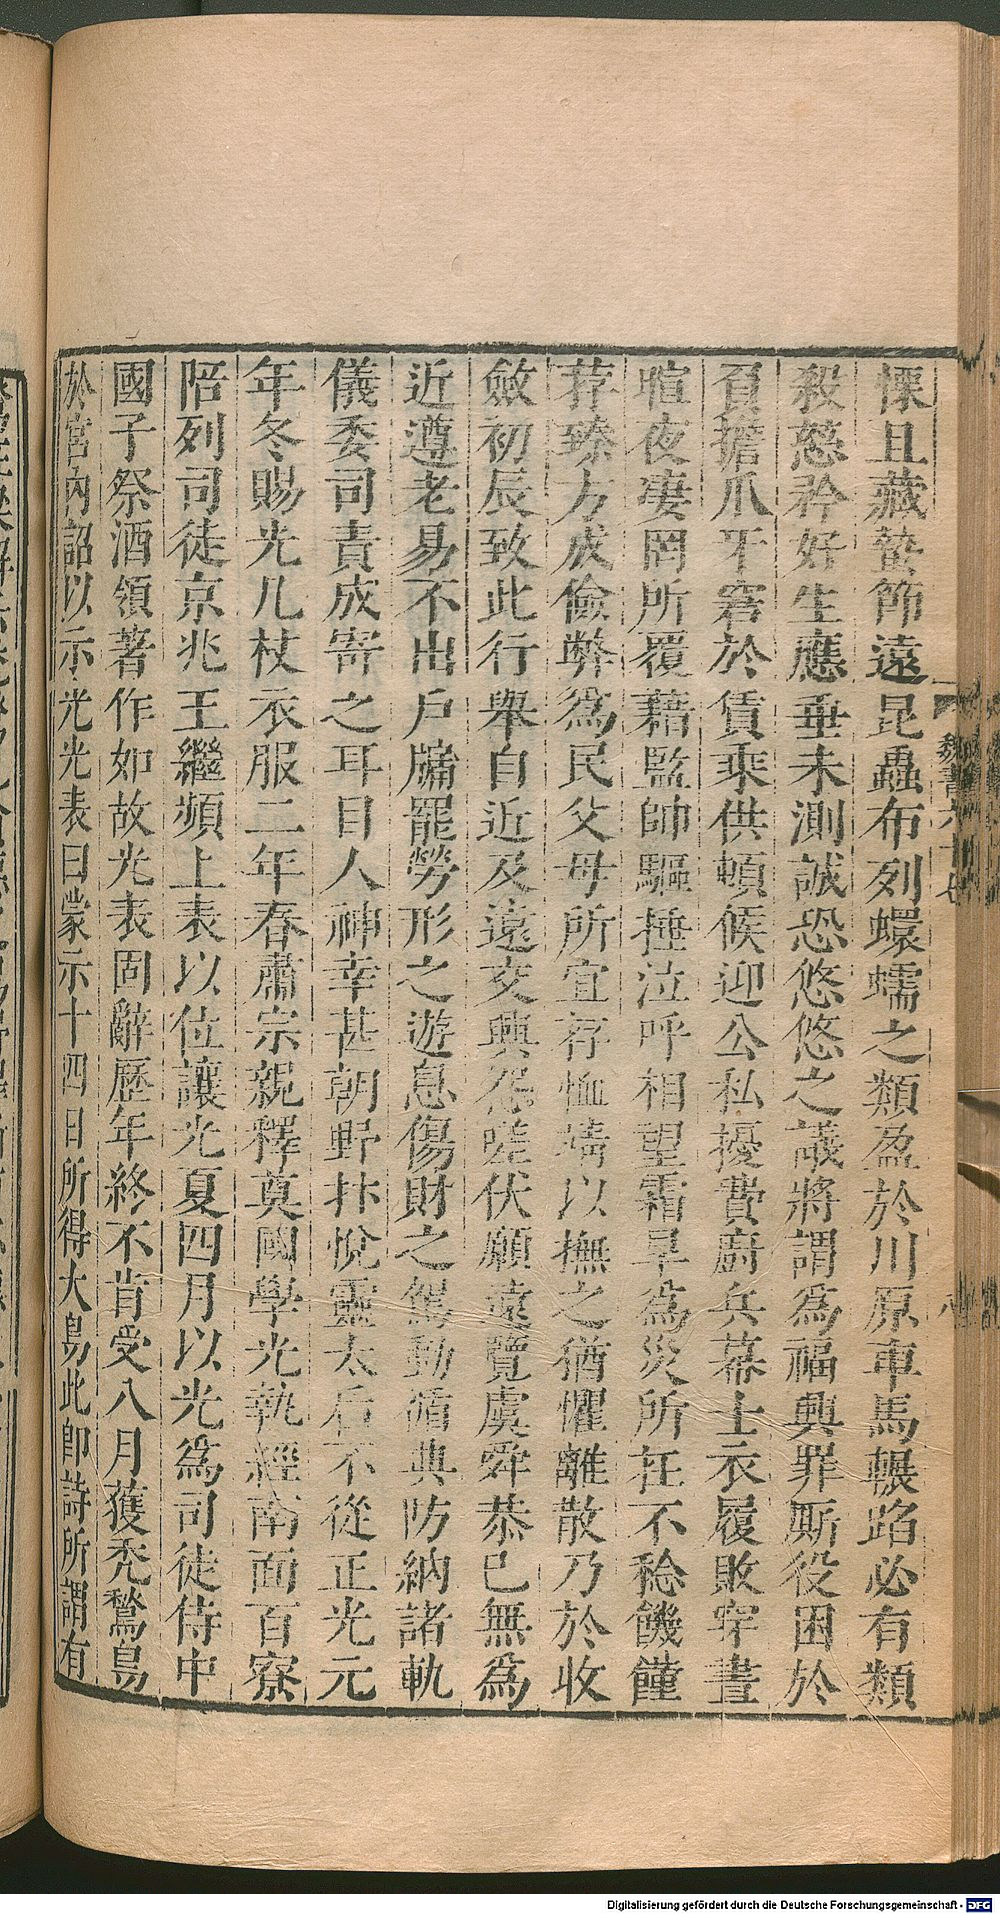 慄且藏蟄節遠昆蟲布列蠉蠕之類盈於川原車馬輾蹈必有類
殺慈矜好生應垂未測誠恐悠悠之議將謂爲福興罪厮役困於
負擔爪牙窘於賃乘供頓候迎公私擾費廚兵幕士衣履敗穿晝
暄夜凄罔所覆藉監帥驅捶泣呼相望霜旱爲災所在不稔饑饉
荐臻方成儉弊爲民父母所宜存恤靖以撫之猶懼離散乃於收
斂初辰致此行舉自近及遠交興怨嗟伏願遠覽虞舜恭己無爲
近遵老易不出戶牖罷勞形之遊息傷財之駕動循典防納諸軌
儀委司責成寄之耳目人神幸甚朝野抃悅靈太后不從正光元
年冬賜光几杖衣服二年春肅宗親釋奠國學光執經南面百寮
陪列司徒京兆王繼頻上表以位讓光夏四月以光爲司徒侍中
國子祭酒領著作如故光表固辭歷年終不肯受八月獲禿鶖鳥
於宮內詔以示光光表曰蒙示十四日所得大鳥此卽詩所謂有
魏書六十七
八
Digitalisierung gefördert durch die Deutsche Forschungsgemeinschaft - DFG